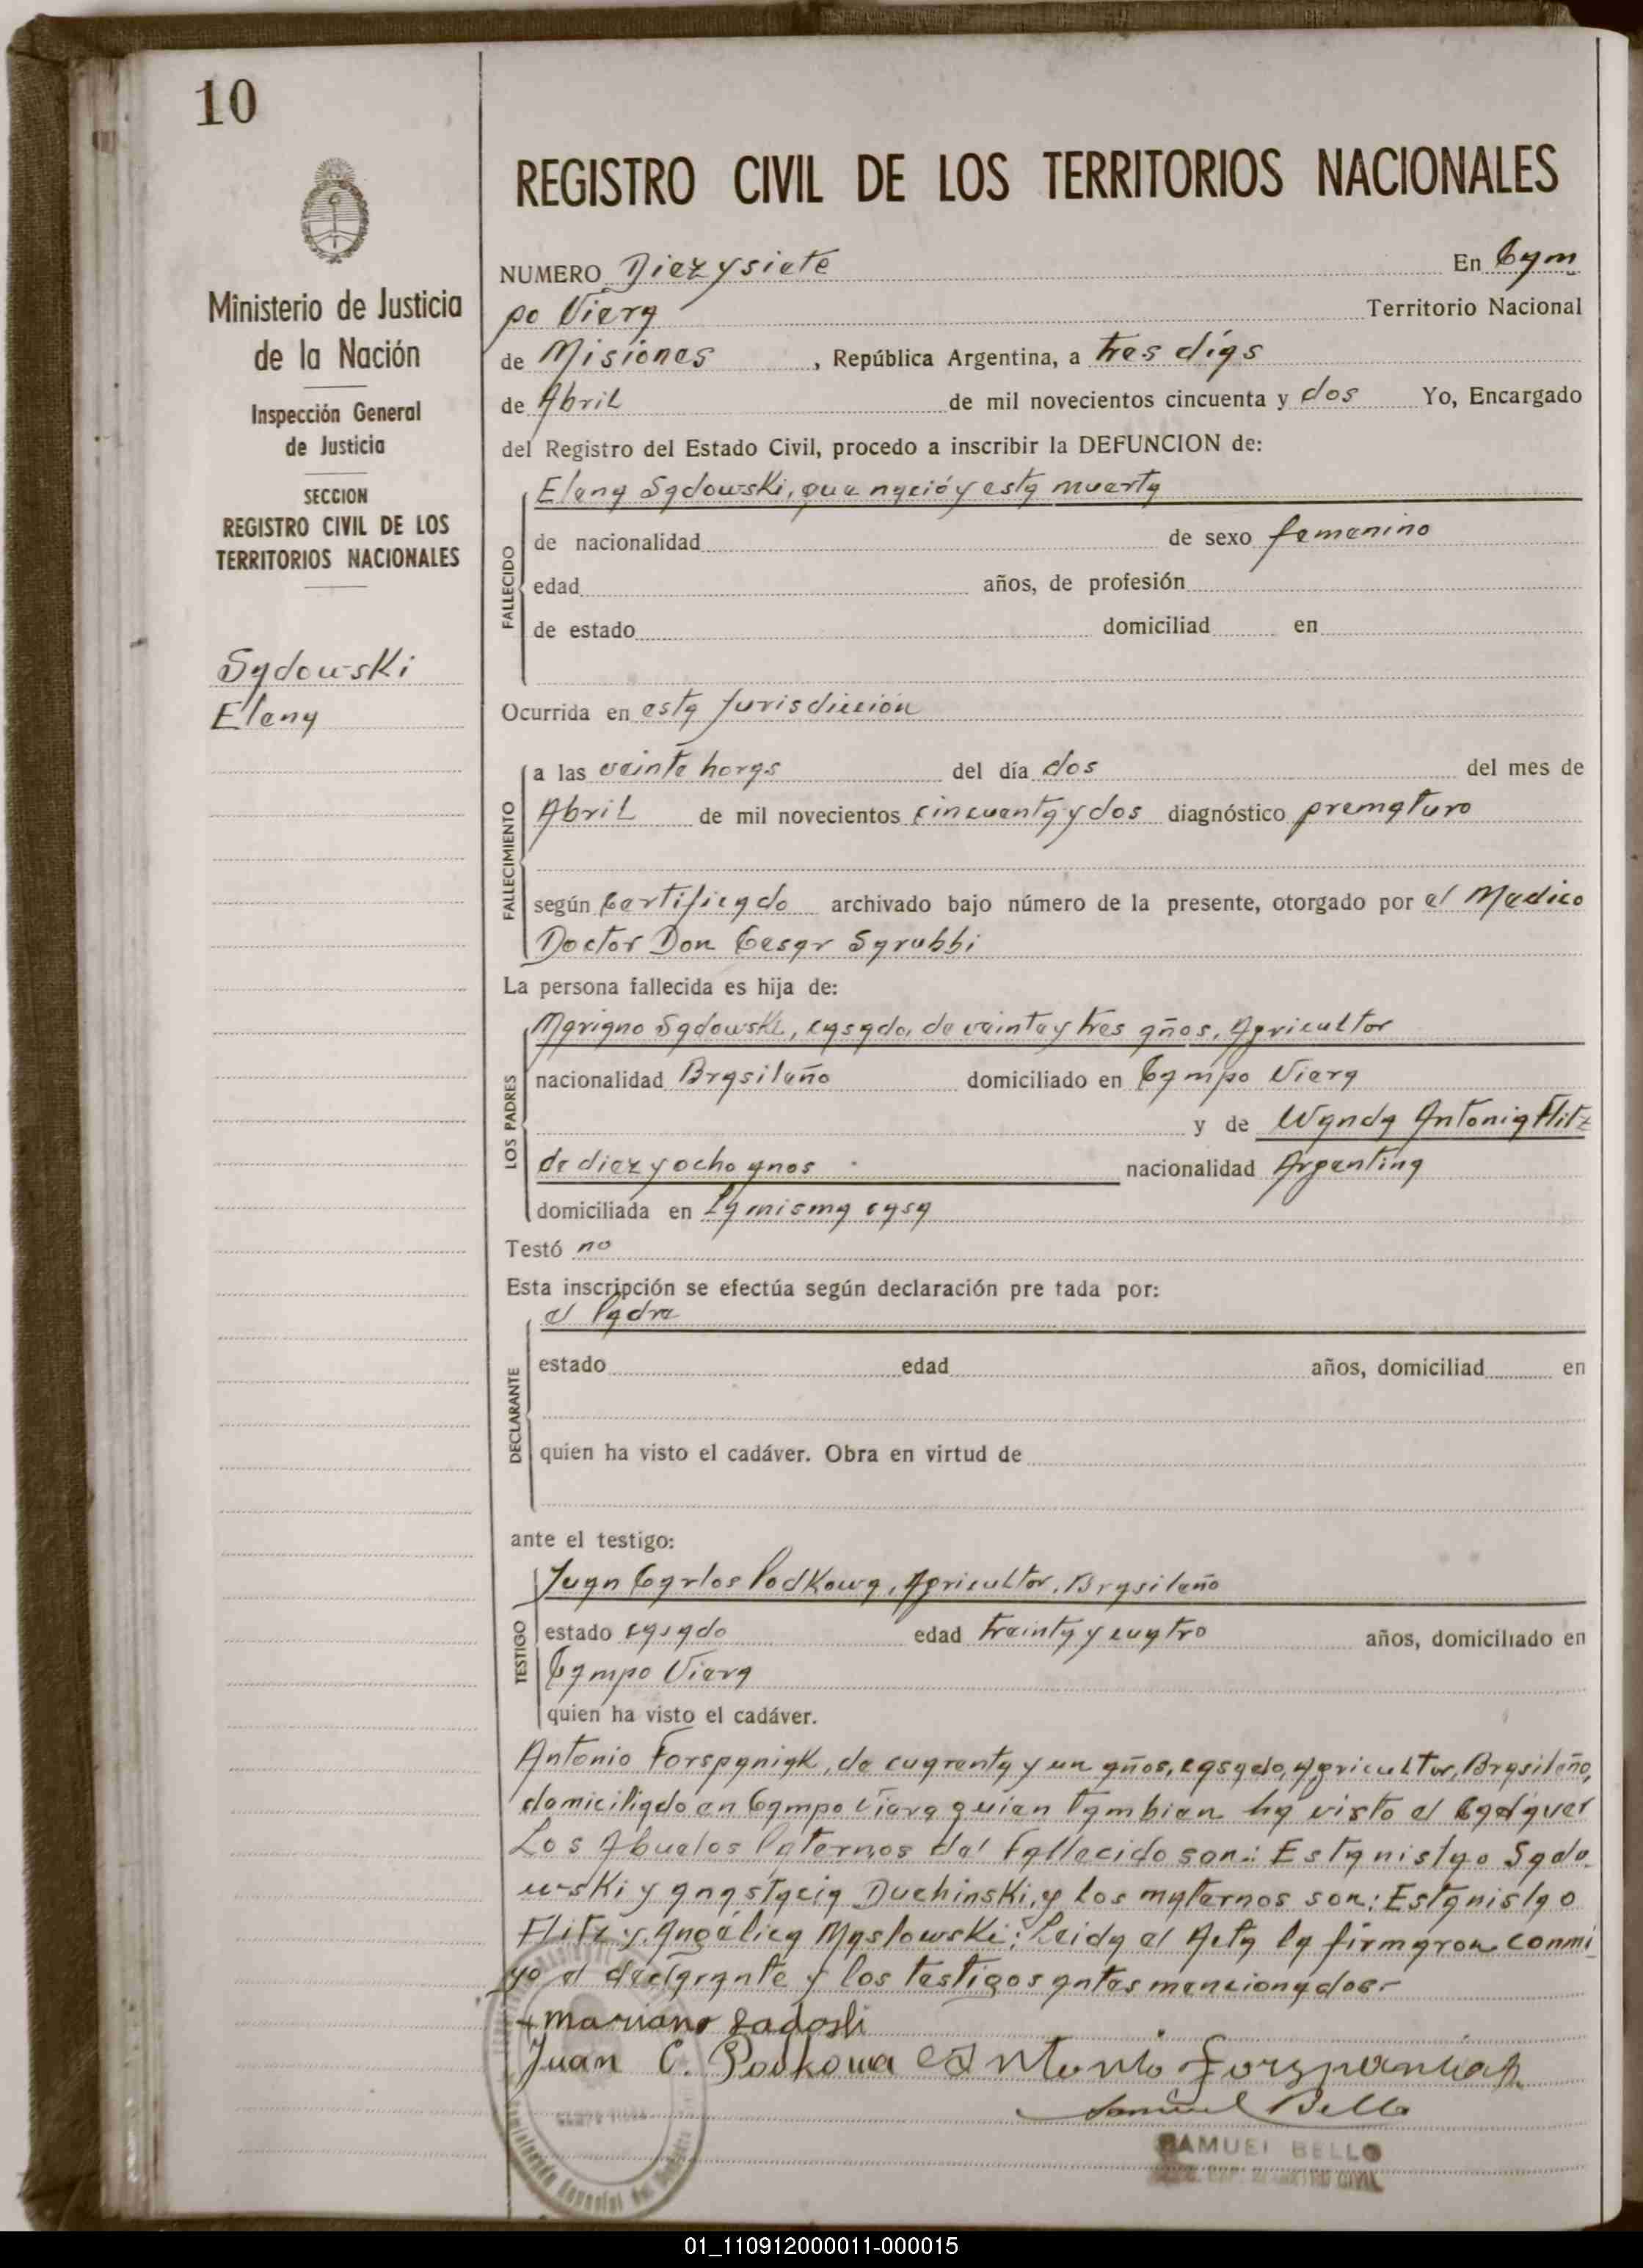 10
Ministerio de Justicia
de la Nación
Inspección General
de Justicia
SECCION
REGISTRO CIVIL DE LOS
TERRITORIOS NACIONALES
Sadowski
Elena
REGISTRO CIVIL DE LOS TERRITORIOS NACIONALES
NUMERO Diez y siete En Cam
po Viera Territorio Nacional
de Misiones, República Argentina, a tres días
de Abril de mil novecientos cincuenta y dos Yo, Encargado
del Registro del Estado Civil, procedo a inscribir la DEFUNCION de:
Elena Sadowski, que nació y esta muerta
FALLECIDO
de nacionalidad de sexo femenino
edad años, de profesión
de estado domiciliad en
Ocurrida en esta Jurisdicción
FALLECIMIENTO
a las veinte horas del día dos del mes de
Abril de mil novecientos cincuenta y dos diagnóstico prematuro
según Certificado archivado bajo número de la presente, otorgado por el Medico
Doctor Don Cesar Sarubbi
La persona fallecida es hija de:
LOS PADRES
Mariano Sadowski, casado, de veinte y tres años, Agricultor
nacionalidad Brasileño domiciliado en Campo Viera
y de Wanda Antonia Flitz
de diez y ocho anos nacionalidad Argentina
domiciliada en La misma casa
Testó no
Esta inscripción se efectúa según declaración pre tada por:
el Padre
DECLARANTE
estado edad años, domiciliad en
quien ha visto el cadáver. Obra en virtud de
ante el testigo:
TESTIGO
Juan Carlos Podkowa, Agricultor, Brasileño
estado casado edad treinta y cuatro años, domiciliado en
Campo Viera
quien ha visto el cadáver.
Antonio Forspaniak, de cuarenta y un años, casado, Agricultor, Brasileño,
domiciliado en Campo Viera quien tambien ha visto el Cadaver
Los Abuelos Paternos del Fallecido son: Estanislao Sado
wski y anastacia Duchinski, y los maternos son: Estanislao
Flitz y Angélica Maslowski; Leida el Acta la firmaron conmi
go el declarante y los testigos antes mencionados-
mariano Sadoski
Juan C. Podkowa Antonio Forspaniak
Samuel Bello
SAMUEL BELLO